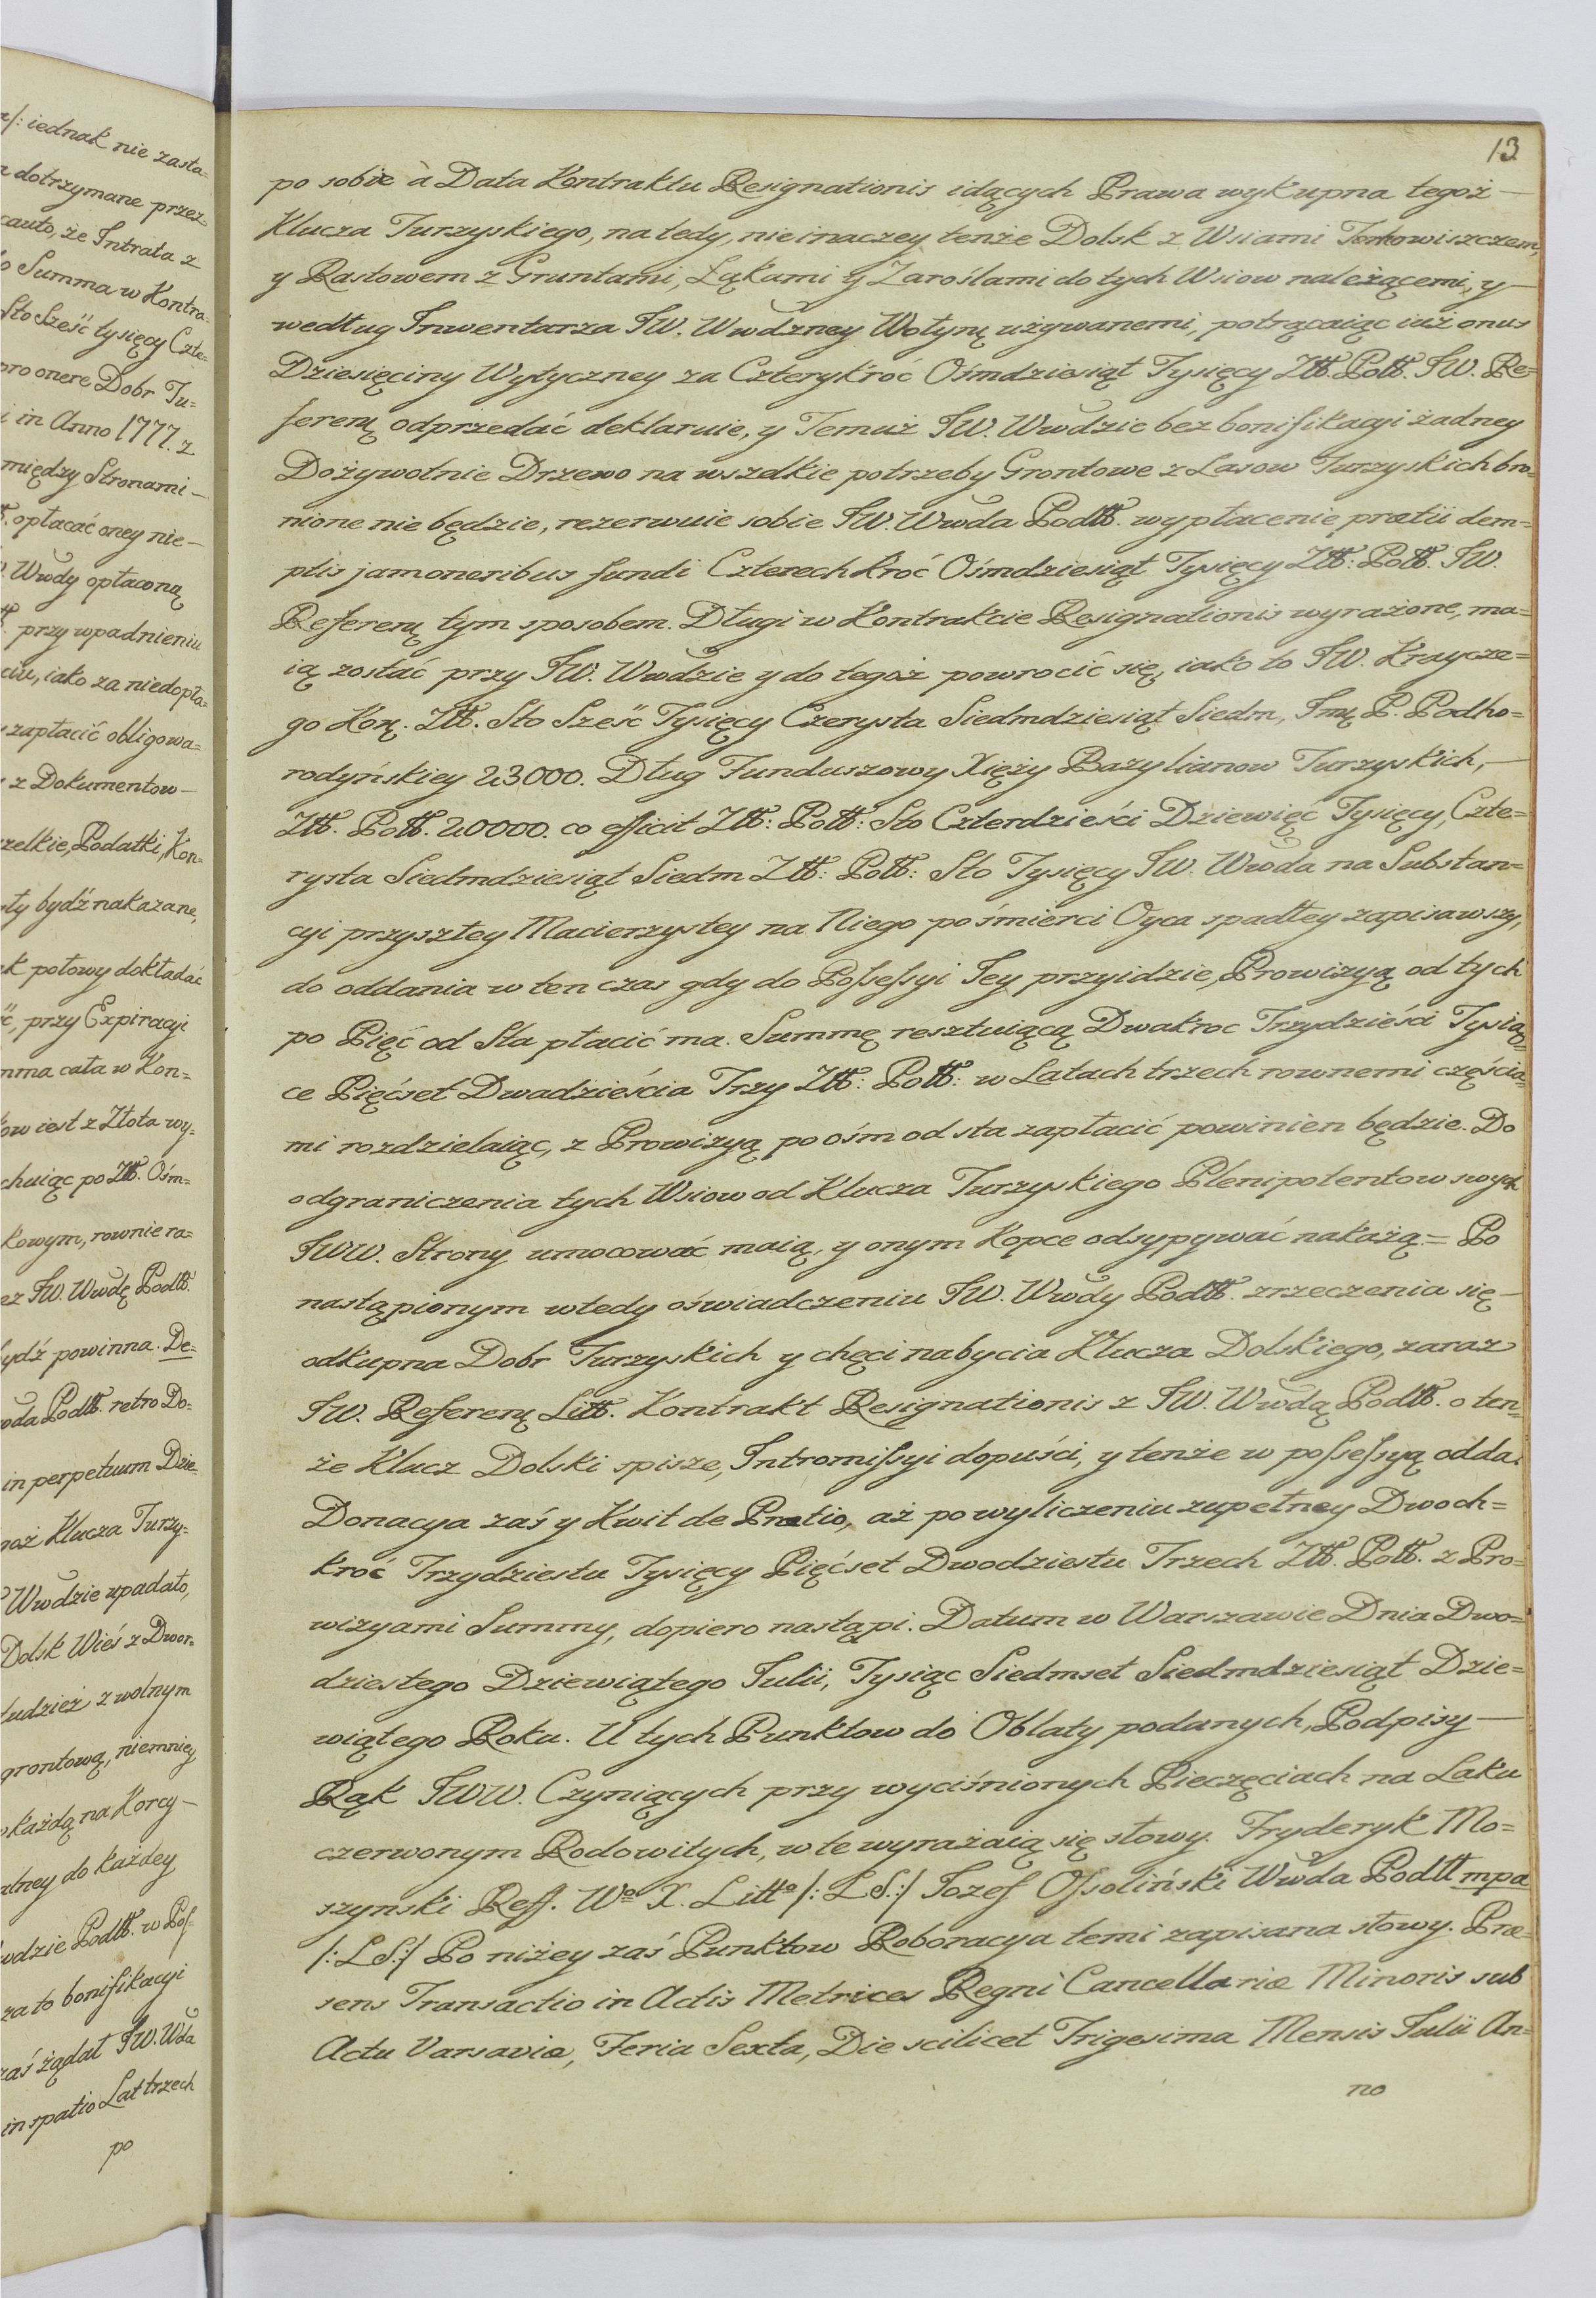 a/: iednak nie zasta=
a dotrzymane przez=
cauto, że Intrata z
o Summa w Kontra=
Sto Sześć tysięcy Czte=
pro onere Dobr Tu=
i in Anno 1777. z
między Stronami —
opłacać oney nie —
Wwdy opłaconą
przy wpadnieniu
ciu, iako za niedopła=
zapłacić obligowa=
z Dokumentow —
zelkie, Podatki, Kon=
ty bydź nakazane,
ak połowy dokładać
ć, przy Expiracyi
mma cała w Kon=
ow iest z Złota wy=
chuiąc po Złł. Ośm=
kowym, rownie ra=
ez JW. Wwdę Podłł.
ydź powinna. De=
woda Podłł. retro Do=
in perpetuum Dzie=
goż Klucza Turzy=
Wwdzie upadało,
Dolsk Wieś z Dwor=
tudzież z wolnym
grontową, niemniey
każdą na Korcy —
alney do każdey
wdzie Podłł. w Pos=
za to bonifikacyi
zaś żądał JW. Wda
in spatio Lat trzech
po
13
po sobie à Data Kontraktu Resignationis idących Prawa wykupna tegoż —
Klucza Turzyskiego, na tedy, nie inaczey tenże Dolsk z Wsiami Tonkowiszczem,
y Rastowem z Gruntami, Łąkami y Zaroślami do tych Wsiow należącemi, y —
według Inwentarza JW. Wwdzney Wołyńȩ używanemi, potrącaiąc iuż onus
Dziesięciny Wytyczney za Czterykroć Ośmdziesiąt Tysięcy Złł. Polł. JW. Re=
ferenȩ odprzedać deklaruie, y Temuż JW. Wwdzie bez bonifikacyi żadney
Dożywotnie Drzewo na wszelkie potrzeby Grontowe z Lasow Turzyskich bro=
nione nie będzie, rezerwuie sobie JW. Wwda Podłł. wypłacenie pretii dem=
ptis jam oneribus fundi Czterech kroć Ośmdziesiąt Tysięcy Złł: Polł. JW.
Referenȩ tym sposobem. Długi w Kontrakcie Resignationis wyrażone, ma=
ią zostać przy JW. Wwdzie y do tegoż powrocić się, iako to JW. Kraycze=
go Korȩ. Złł. Sto Sześć Tysięcy Czerysta Siedmdziesiąt Siedm, Jmȩ P. Podho=
rodyńskiey 23000. Dług Funduszowy Xięży Bazylianow Turzyskich, —
Złł. Polł. 20000. co efficit Złł: Polł: Sto Czterdzieści Dziewięć Tysięcy, Czte=
rysta Siedmdziesiąt Siedm Złł: Polł: Sto Tysięcy JW. Wwda na Substan=
cyi przyszłey Macierzystey na Niego po śmierci Oyca spadłey zapisawszy,
do oddania w ten czas gdy do Possessyi Jey przyidzie, Prowizyą od tych
po Pięć od Sta płacić ma. Summę resztuiącą Dwakroc Trzydzieści Tysią=
ce Pięćset Dwadzieścia Trzy Złł: Polł: w Latach trzech rownemi częścia=
mi rozdzielaiąc, z Prowizyą po ośm od sta zapłacić powinien będzie. Do
odgraniczenia tych Wsiow od Klucza Turzyskiego Plenipotentow swych
JWW. Strony umocować maią, y onym Kopce odsypywać nakażą = Po
nastąpionym wtedy oświadczeniu JW. Wwdy Podłł. zrzeczenia się —
odkupna Dobr Turzyskich y chęci nabycia Klucza Dolskiego, zaraz
JW. Referenȩ Litt. Kontrakt Resignationis z JW. Wwdą Podłł. o ten=
że Klucz Dolski spisze, Intromissyi dopuści, y tenże w possessyą odda.
Donacya zaś y Kwit de Pretio, aż po wyliczeniu zupełney Dwoch=
kroć Trzydziestu Tysięcy Pięćset Dwodziestu Trzech Złł. Polł. z Pro=
wizyami Summy, dopiero nastąpi. Datum w Warszawie Dnia Dwo=
dziestego Dziewiątego Julii, Tysiąc Siedmset Siedmdziesiąt Dzie=
wiątego Roku. U tych Punktow do Oblaty podanych, Podpisy —
Rąk JWW. Czyniących przy wyciśnionych Pieczęciach na Laku
czerwonym Rodowitych, w te wyrażaią się słowy. Fryderyk Mo=
szynski Reff. Wº X. Littº /: L.S.:/ Jozef Ossoliński Wwda Podll mpa
/: L.S.:/ Po niżey zaś Punktow Roboracya temi zapisana słowy. Præ=
sens Transactio in Actis Metrices Regni Cancellariæ Minoris sub
Actu Varsaviæ, Feria Sexta, Die scilicet Trigesima Mensis Julii An=
no